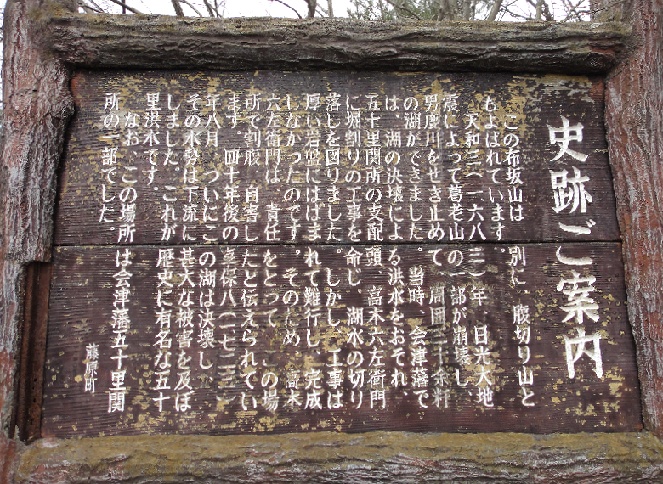 史跡ご案内
この布坂山は 別に 腹切り山と
もよばれています。
天和三(一六八三)年、日光大地
震によって葛老山の一部が崩壊し、
男鹿川をせき止めて、周囲三十余粁
の湖ができました。当時、会津藩で
は、湖の決壊による洪水をおそれ、
五十里関所の支配頭、高木六左衛門
に堀割りの工事を命じ、湖水の切り
落しを図りました。しかし、工事は
厚い岩盤にはばまれて難行し、完成
しなかったのです。そのため、高木
六左衛門は、責任をとって、この場
所で割腹、自害したと伝えられてい
ます。四十年後の享保八(一七二三)
年八月、ついにこの湖は決壊し、
その水勢は下流に甚大な被害を及ぼ
しました。これが歴史に有名な五十
里洪水です。
なお、この場所は会津藩五十里関
所の一部でした。
藤原町